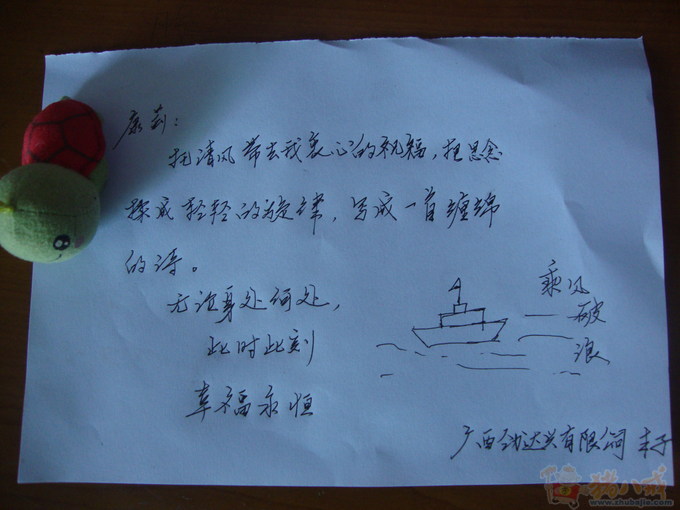 康莉：
托清风带去我衷心的祝福，把思念
揉成轻轻的旋律，写成一首缠绵
的诗。
无论身处何处，
此时此刻
幸福永恒
乘风
破
浪
广西劲达兴有限公司 丰子
猪八戒
www.zhubajie.com